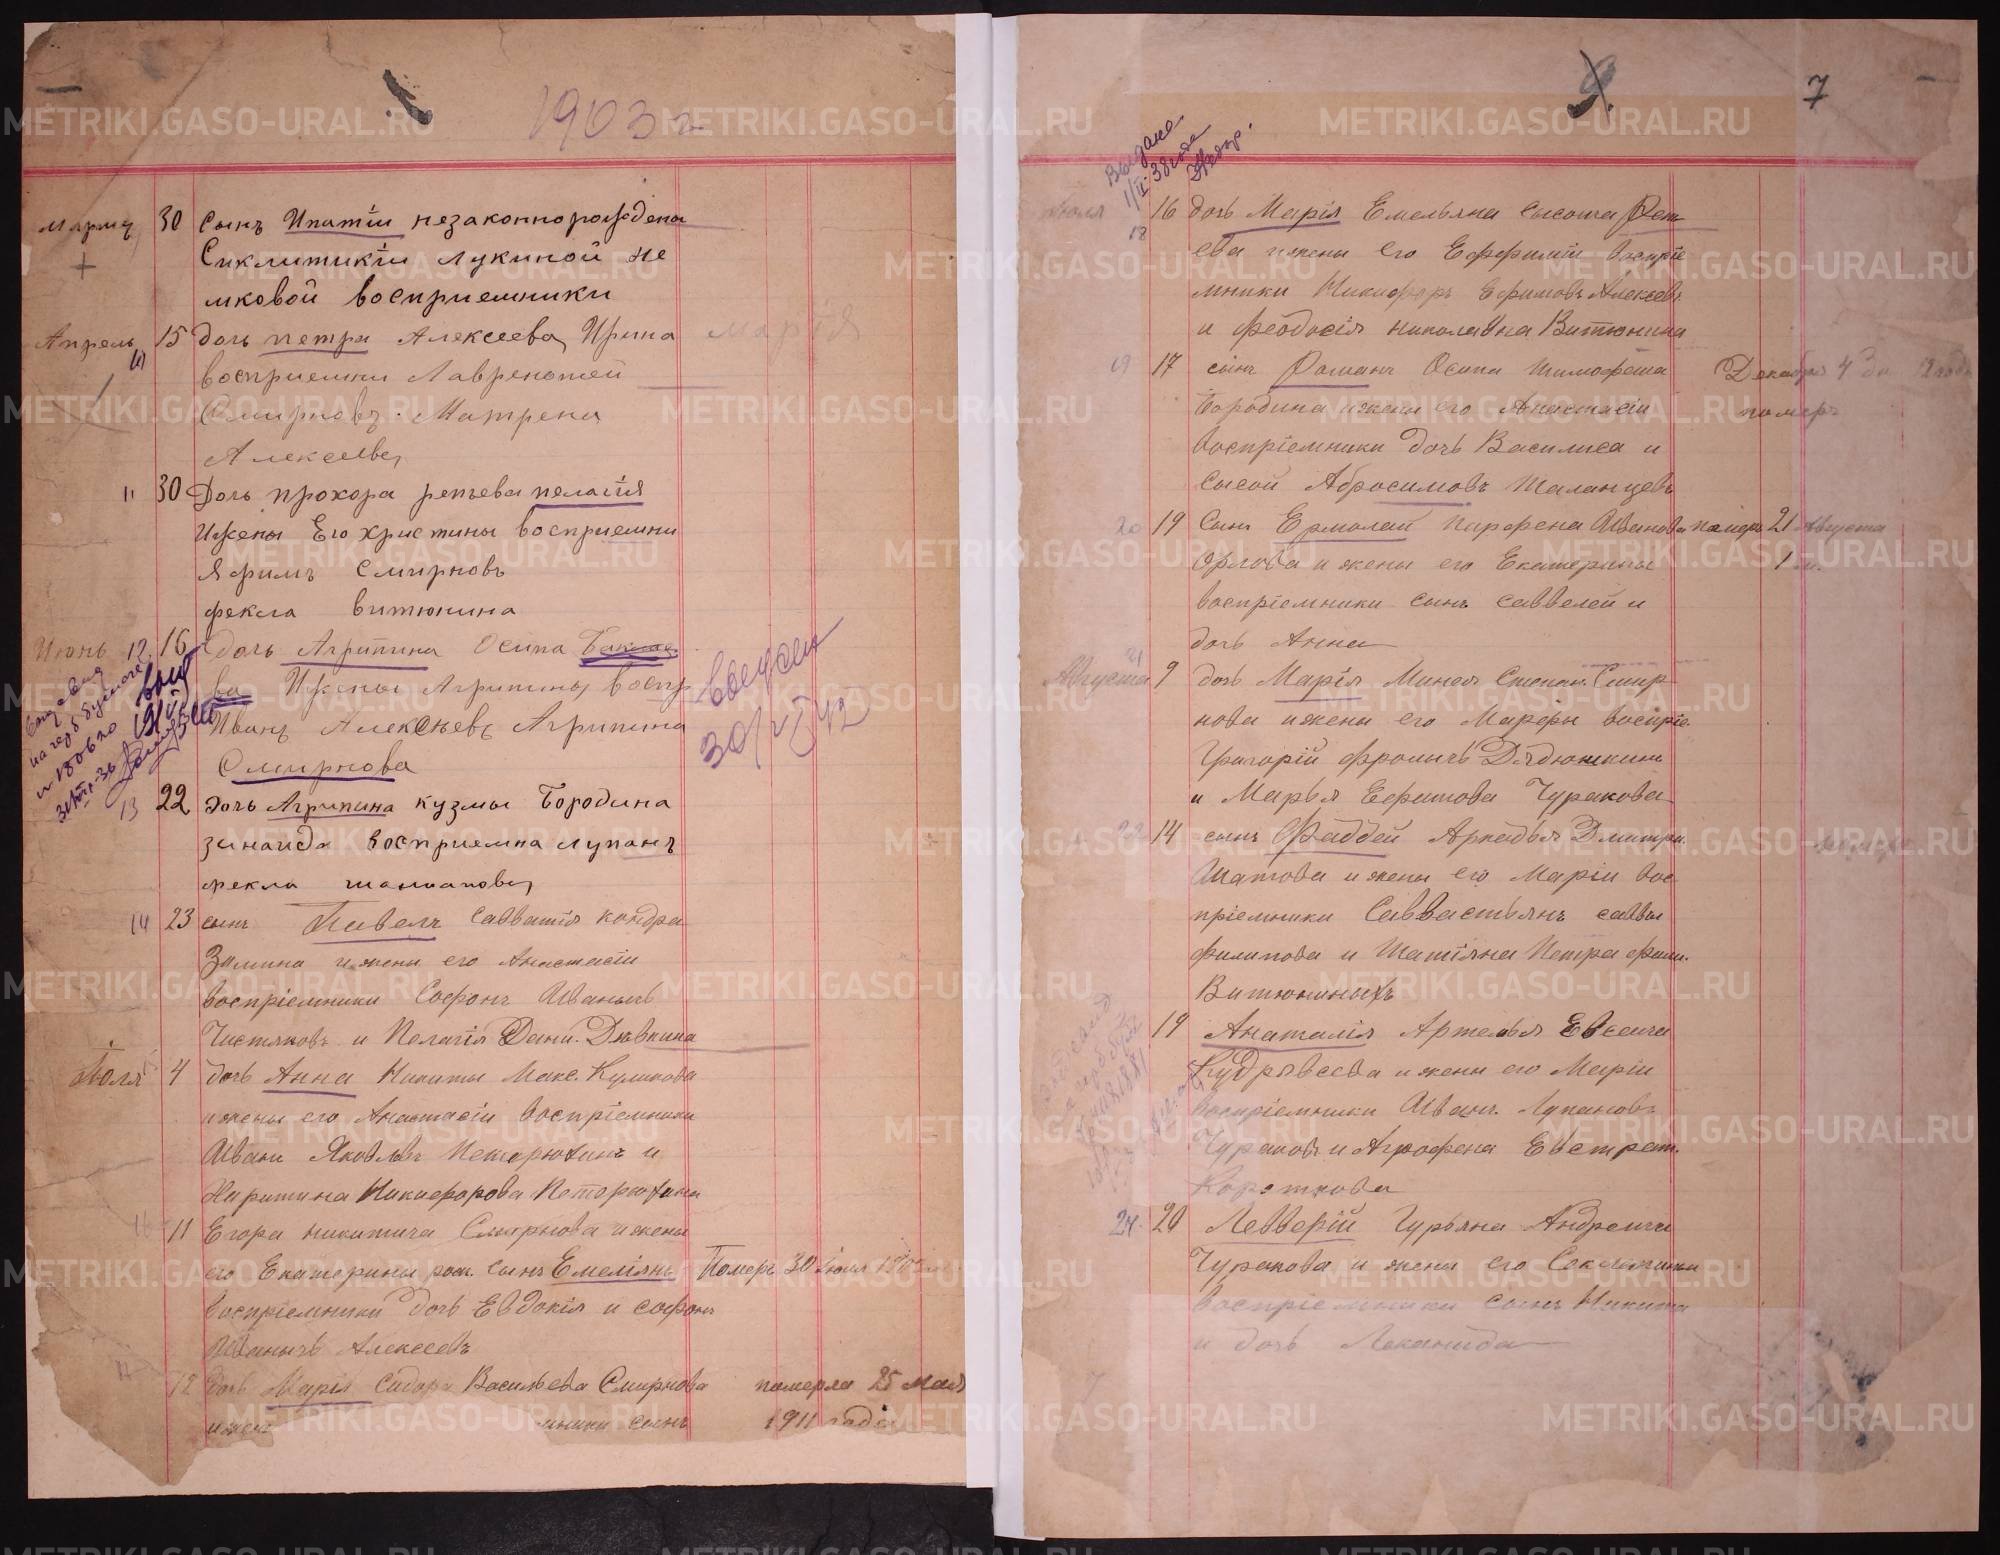 1903 г
Марта 30 сынъ Ипатiи незаконнорожденa
Сиклитикiи Лукиной Не
мковой восприемники
Апрель 15 дочь петра Алексеева Ирина
10 восприемни Лаврентей
Смирновъ Матрена
Алексеева
Мария
11 30 Дочь прохора репьева пелагiя
Ижены Его христины восприемни
Яфимъ Смирновъ
фекла витюнина
Июнь 12 16 дочь Агрипина Осипа
ва Ижены Агрипины воспр
Иванъ Алексѣевъ Агрипина
Смирнова
13 22 дочь Агрипина кузмы Бородина
зинаида восприемна лупанъ
фекла
14 23 сынъ Павелъ савватiя кондра
Зимина и жены его Анастасiи
воспрiемники Софонъ Иванычъ
Чистяковъ и Пелагiя Дани.
Iюля 4 дочь Анна Никиты Макс. Куликова
и жены его Анастасiи воспрiемники
Иванъ Яковлевъ и
Харитина Никифорова
11 Егора никитича Смирнова и жены
его Екатерины рож. сынъ Емелiянъ Померъ 30 iюля
воспрiемники дочь Евдокiя и софонъ
Иванычъ Алексеевъ
12 дочь Марiя Сидора Васильева Смирнова померла 25 Мая
и жен мники сынъ 1911 года
7
Выдано
Iюля 16 дочь Марiя Емельяна сысоича Реп
18 ева и жены его Ефросинiи воспрiе
мники Никифоръ Ефимовъ Алексеевъ
и Феодосiя николаена Витюнина
19 17 сынъ Романъ Осипа тимофеича Декабря 4 дн 12 года
Бородина и жены его Анастасiи померъ
воспрiемники дочь Василиса и
сысой Абросимовъ Шаланцевъ
20 19 Сынъ Ермолай парфена Иванова померъ 21 Августа
Орлова и жены его Екатерины
воспрiемники сынъ савелей и
дочь Анна
Августа 21 9 дочь Марiя Минея Степан. Смир
нова и жены его Марфы воспрiе
Григорiй Фролычъ Дядюшкинъ
и Марья Ефимова Чуракова
22 14 сынъ Фаддей Аркадья Дмитри.
Шатова и жены его Марiи вос
прiемники Саввастьянъ саввы
филипова и Татiяна Петра Фили.
Витюниныхъ
19 Анаталiя Артемья Евсеича
Кудрявсева и жены его Марiи
воспрiемники Иванъ Лупановъ
Чураковъ и Агрофена Евстрат.
Короткова
24. 20 Левверiй Гурьяна Андреича
Чуракова и жены его
воспрiемники сынъ Никита
и дочь Леканида
METRIKI.GASO-URAL.RU